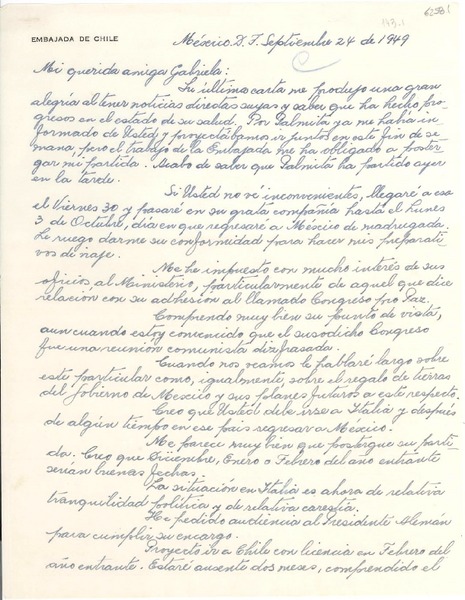 62581
143.1
EMBAJADA DE CHILE
México. D. F. Septiembre 24 de 1949
Mi querida amiga Gabriela:
Su última carta me produjo una gran
alegría al tener noticias directas suyas y saber que ha hecho pro-
gresos en el estado de su salud. Por Palmita ya me había in-
formado de Usted y proyectábamos ir juntos en este fin de se-
mana pero el trabajo de la Embajada me ha obligado a poster-
gar mi partida. Acabo de saber que Palmita ha partido ayer
en la tarde.
Si Usted no vé inconvenientes, llegaré a esa
el Viernes 30 y pasaré en su grata compañía hasta el Lunes
3 de Octubre, día en que regresaré a México de madrugada.
Le ruego darme su conformidad para hacer mis preparati-
vos de viaje.
Me he impuesto con mucho interés de sus
oficios al Ministerio, particularmente de aquel que dice
relación con su adhesión al llamado Congreso pro Paz.
Comprendo muy bien su punto de vista,
aun cuando estoy convencido que el susodicho Congreso
fue una reunión comunista disfrasada.
Cuando nos veamos le hablaré largo sobre
este particular como, igualmente, sobre el regalo de tierras
del Gobierno de México y sus planes futuros a este respecto.
Creo que Usted debe irse a Italia y después
de algún tiempo en ese país regresar a México.
Me pareci muy bien que postergue su parti-
da. Creo que Diciembre, Enero o Febrero del año entrante
serían buenas fechas.
La situación en Italia es ahora de relativa
tranquilidad política y de relativa carestía.
He pedido audiencia al Presidente Alemán
para cumplir su encargo.
Proyecto ir a Chile con licencia en Febrero del
año entrante. Estaré ausente dos meses, comprendido el